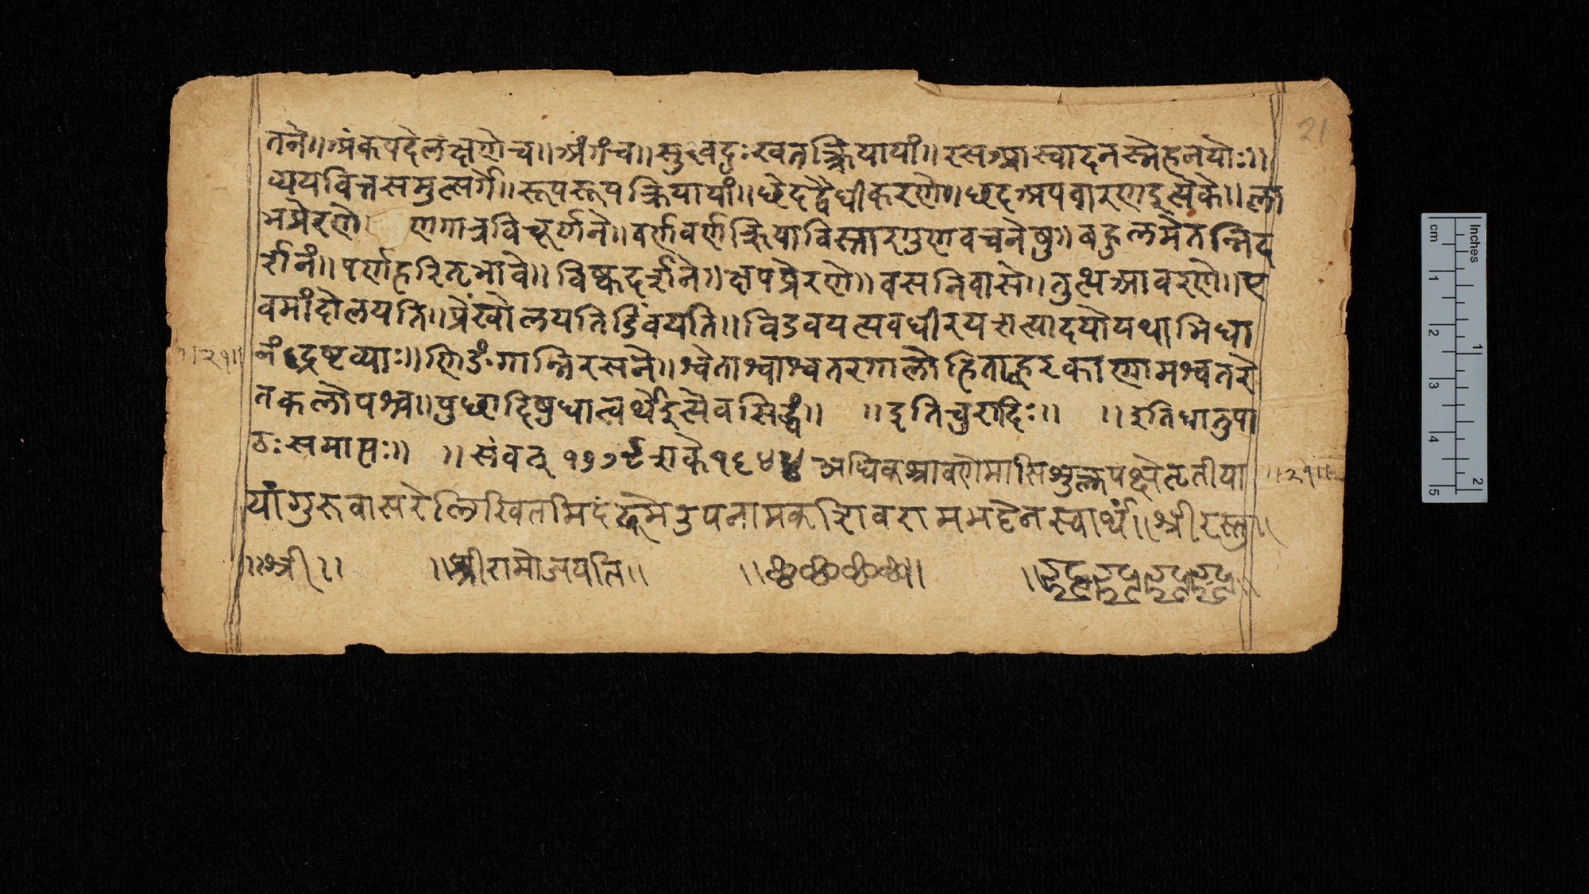 तने॥अंकपदेलक्षणेच॥अंगंच॥सुखदुःखतत्क्रियायां॥रसआस्वादनस्नेहनयोः॥
व्ययवित्तसमुत्सर्गे॥रूपरूपक्रियायां॥छेदद्वैधीकरणे॥छदअपवारणइत्येके॥ला
भप्रेरणे॥ णगात्रविचूर्णने॥वर्णवर्णक्रियाविस्तारगुणवचनेषु॥बहुलमेतन्निद
र्शनं॥पर्णहरितभावे॥विष्कदर्शने॥क्षपप्रेरणे॥वसनिवासे॥तुत्थआवरणे॥ए
वमांदोलयति॥प्रेंखोलयतिडिंवयति॥विडवयत्यवधीरयत्यादयोयथाभिधा
नंद्रष्टव्याः॥णिङंगान्निरसने॥श्वेताश्वाश्वतरगालोहिताह्वरकाणामश्वतरे
तकलोपश्च॥पुछादिषुधात्वर्थेइत्येवसिद्धं॥ ॥इतिचुरादिः॥ ॥इतिधातुपा
ठः समाप्तः॥ ॥संवत् १७७९शके१६४४अधिकश्रावणेमासिशुक्लपक्षेतृतीया
यांगुरुवासरेलिखितमिदं उपनामक रामभट्टेनस्वार्थं॥श्रीरस्तु॥
॥श्री॥ ॥श्रीरामोजयति॥ ॥छ॥छ॥छ॥छ॥
॥२१॥
॥२१॥
21